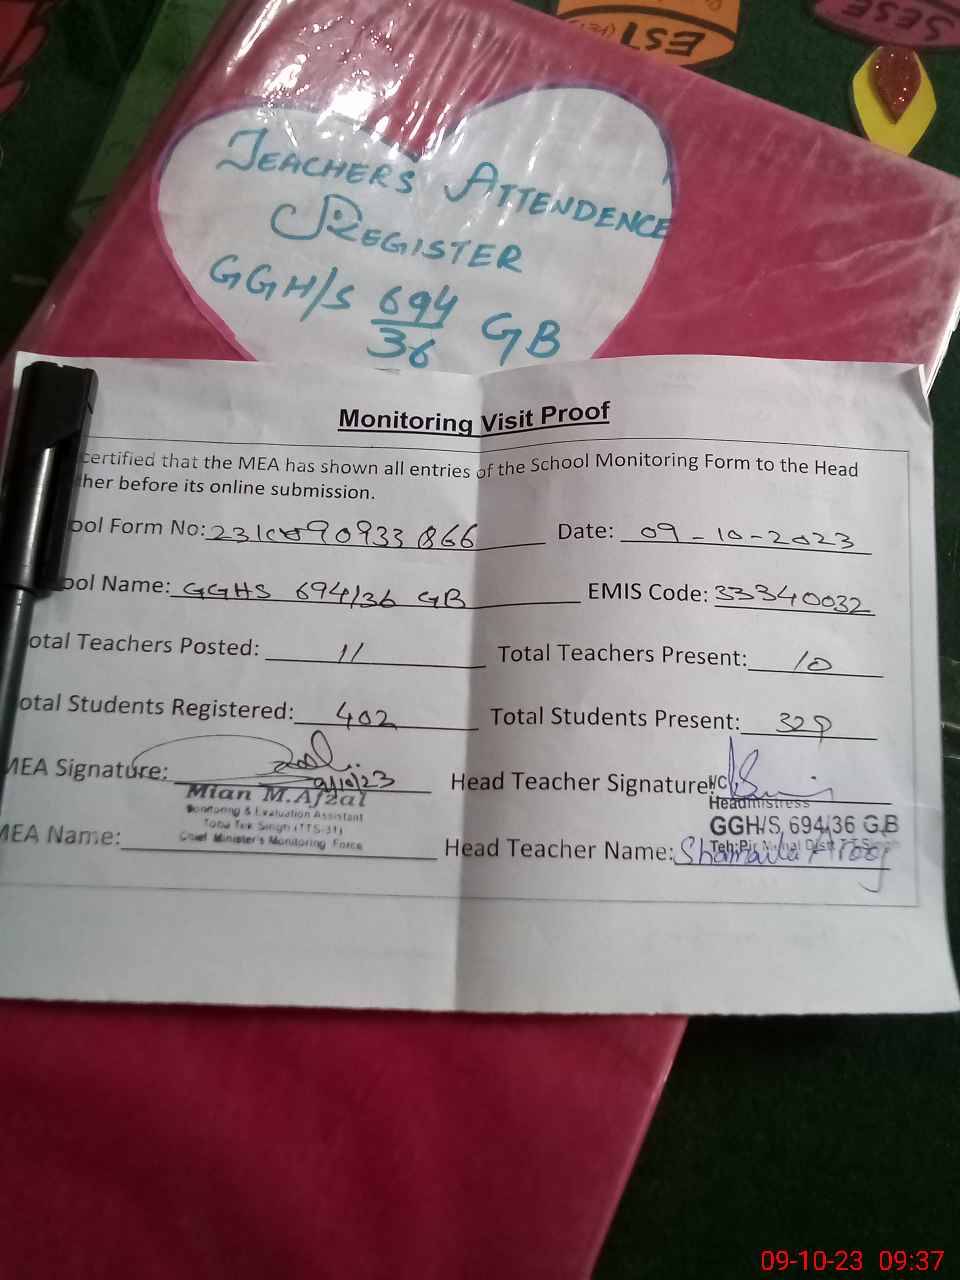 EST
SESE
TEACHERS ATTENDENCE
REGISTER
GGH/S 694/36 GB
Monitoring Visit Proof
certified that the MEA has shown all entries of the School Monitoring Form to the Head
her before its online submission.
ool Form No: Date: 09-10-2023
ool Name: GGHS 694/36 GB EMIS Code: 33340032
otal Teachers Posted: 11 Total Teachers Present: 10
otal Students Registered: 402 Total Students Present:
MEA Signature: 9/10/23 Head Teacher Signature:
Mian M.Afzal
Monitoring & Evaluation Assistant
Toba Tek Singh (TTS-31)
Chief Minister's Monitoring Force
Headmistress
GGH/S, 694/36 G.B
MEA Name: Head Teacher Name: Shamaila
09-10-23 09:37